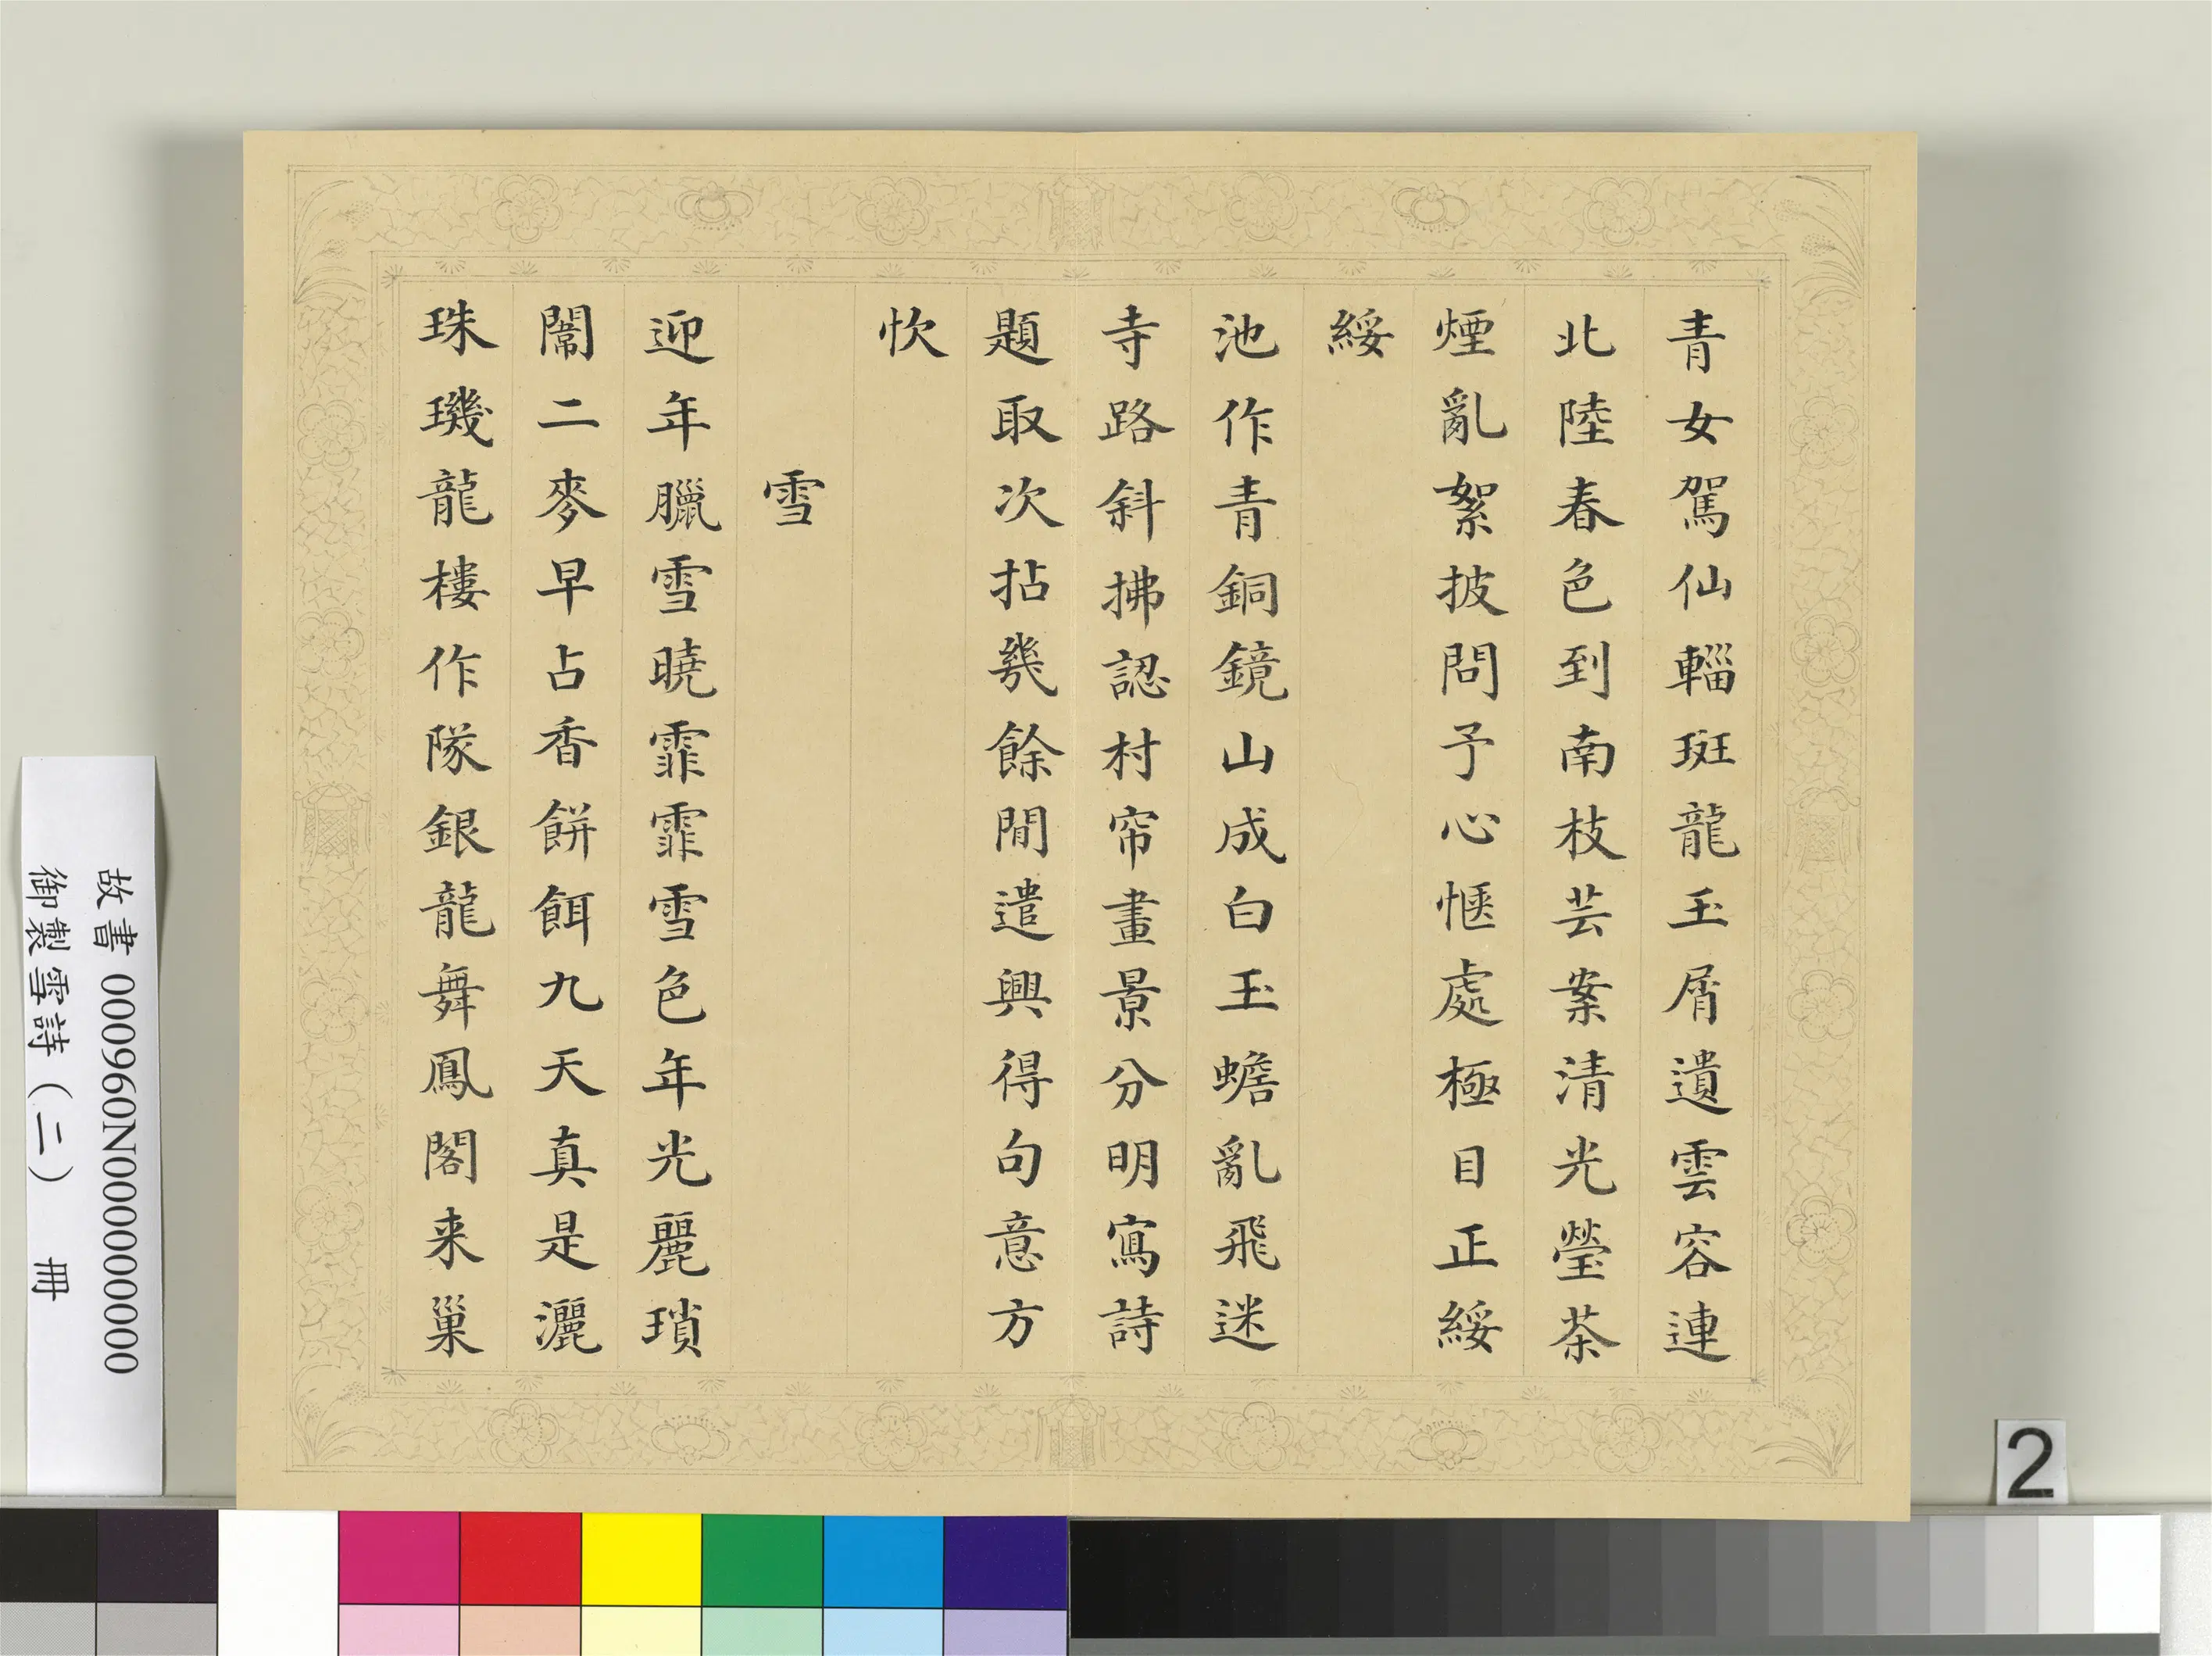 青女駕仙輜斑龍玉屑遺雲容連
北陸春色到南枝芸案清光瑩茶
煙亂絮披問予心愜處極目正綏
綏
池作青銅鏡山成白玉蟾亂飛迷
寺路斜拂認村帘畫景分明寫詩
題取次拈幾餘閒遣興得句意方
忺
雪
迎年臘雪曉霏霏雪色年光麗瑣
闈二麥早占香餅餌九天真是灑
珠璣龍樓作隊銀龍舞鳳閣来巢
故書 000960N000000000
御製雪詩（二） 冊
2